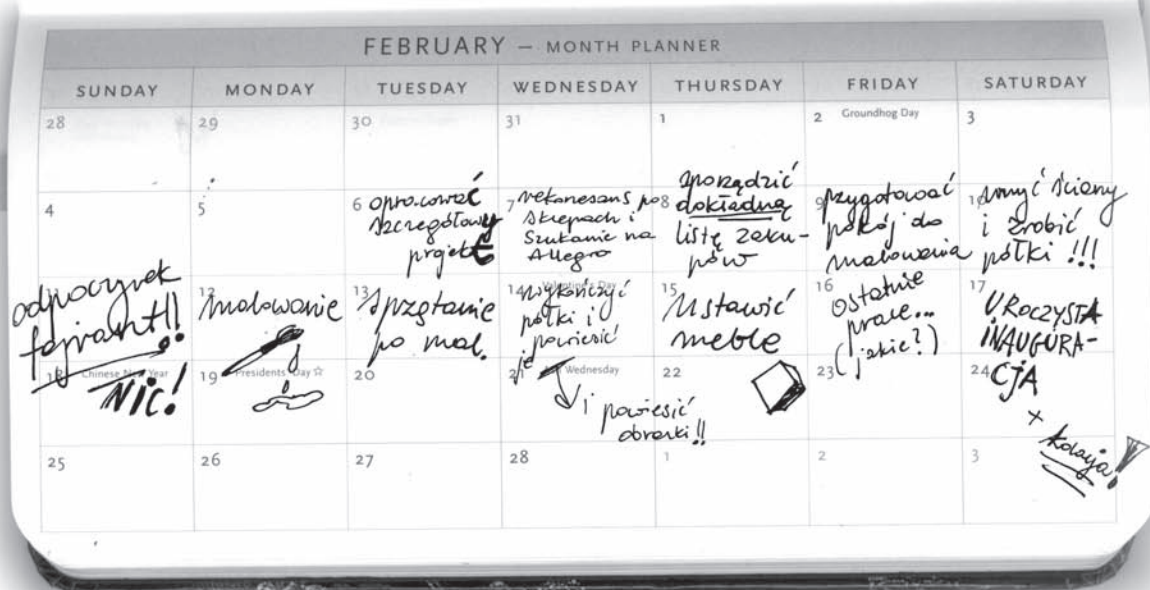 FEBRUARY — MONTH PLANNER
SUNDAY MONDAY TUESDAY WEDNESDAY THURSDAY FRIDAY SATURDAY
28 29 30 31 1 2 Groundhog Day 3
4 5
6 opracować
szczegółowy
projekt
7 rekonesans po
sklepach i
szukanie na
Allegro
8 sporządzić
dokładną
listę zaku-
pów
9 przygotować
pokój do
malowania
10 umyć ściany
i zrobić
półki !!!
odpoczynek
fajrant!!
NIC!
12 malowanie
13 sprzątanie
po mal.
14 Valentine's Day
wykończyć
półki i
powiesić
je
i powiesić
obrazki!!
15 Ustawić
meble
16 ostatnie
prace...
(jakie?)
17 UROCZYSTA
INAUGURA-
CJA
+ kolacja!
18 Chinese New Year 19 Presidents' Day ☆ 20 21 Wednesday 22 23 24
25 26 27 28 1 2 3